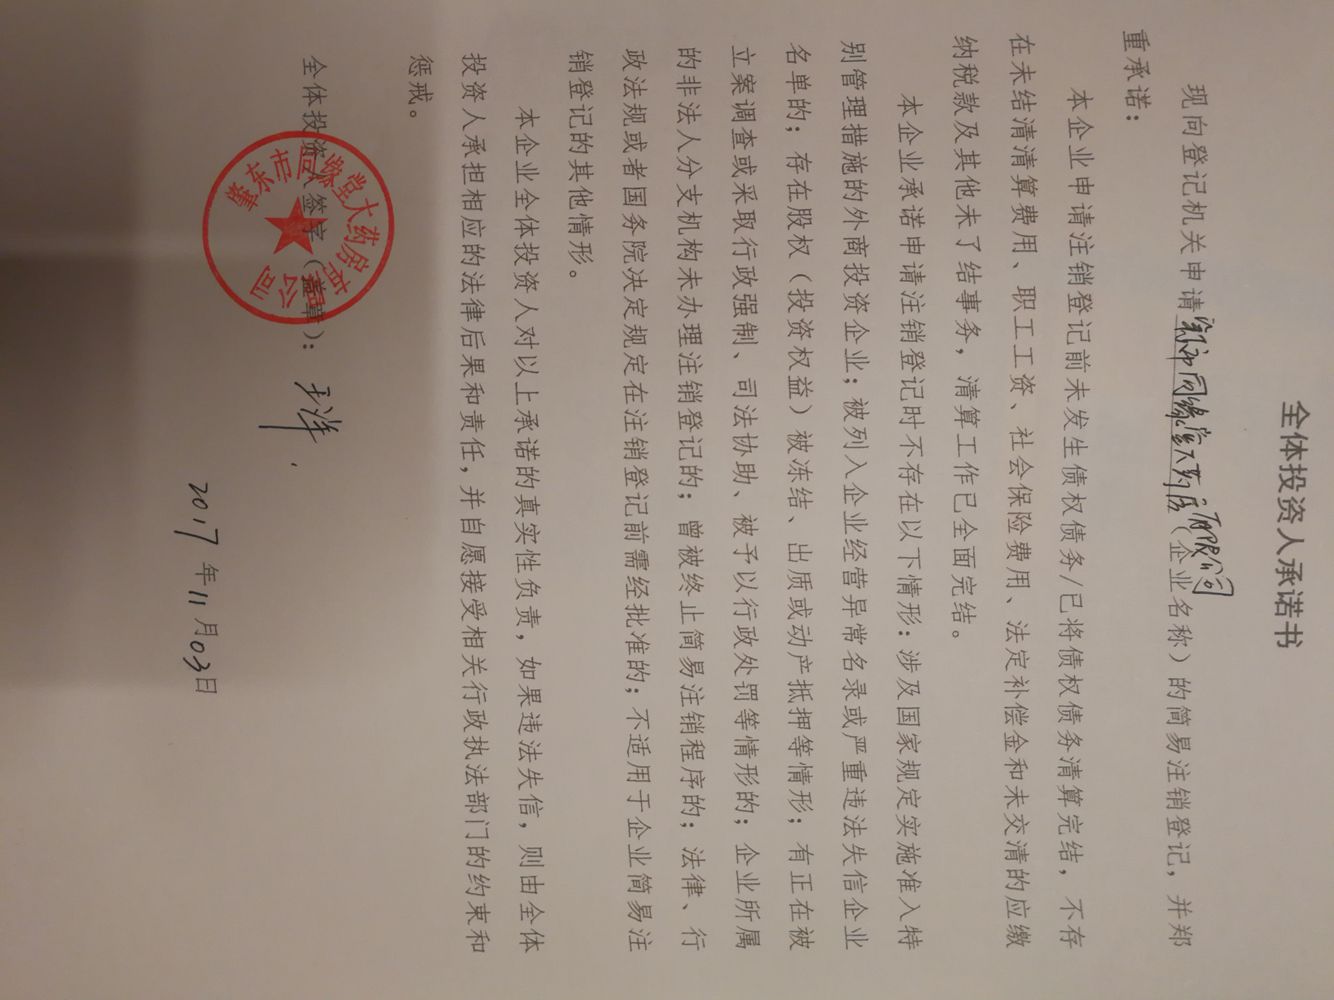 全体投资人承诺书
现向登记机关申请肇东市同缘堂大药房有限公司（企业名称）的简易注销登记，并郑
重承诺：
本企业申请注销登记前未发生债权债务/已将债权债务清算完结，不存
在未结清清算费用、职工工资、社会保险费用、法定补偿金和未交清的应缴
纳税款及其他未了结事务，清算工作已全面完结。
本企业承诺申请注销登记时不存在以下情形：涉及国家规定实施准入特
别管理措施的外商投资企业；被列入企业经营异常名录或严重违法失信企业
名单的；存在股权（投资权益）被冻结、出质或动产抵押等情形；有正在被
立案调查或采取行政强制、司法协助、被予以行政处罚等情形的；企业所属
的非法人分支机构未办理注销登记的；曾被终止简易注销程序的；法律、行
政法规或者国务院决定规定在注销登记前需经批准的；不适用于企业简易注
销登记的其他情形。
本企业全体投资人对以上承诺的真实性负责，如果违法失信，则由全体
投资人承担相应的法律后果和责任，并自愿接受相关行政执法部门的约束和
惩戒。
全体投资人签字（盖章）：王洋
肇东市同缘堂大药房有限公司
2017年11月03日